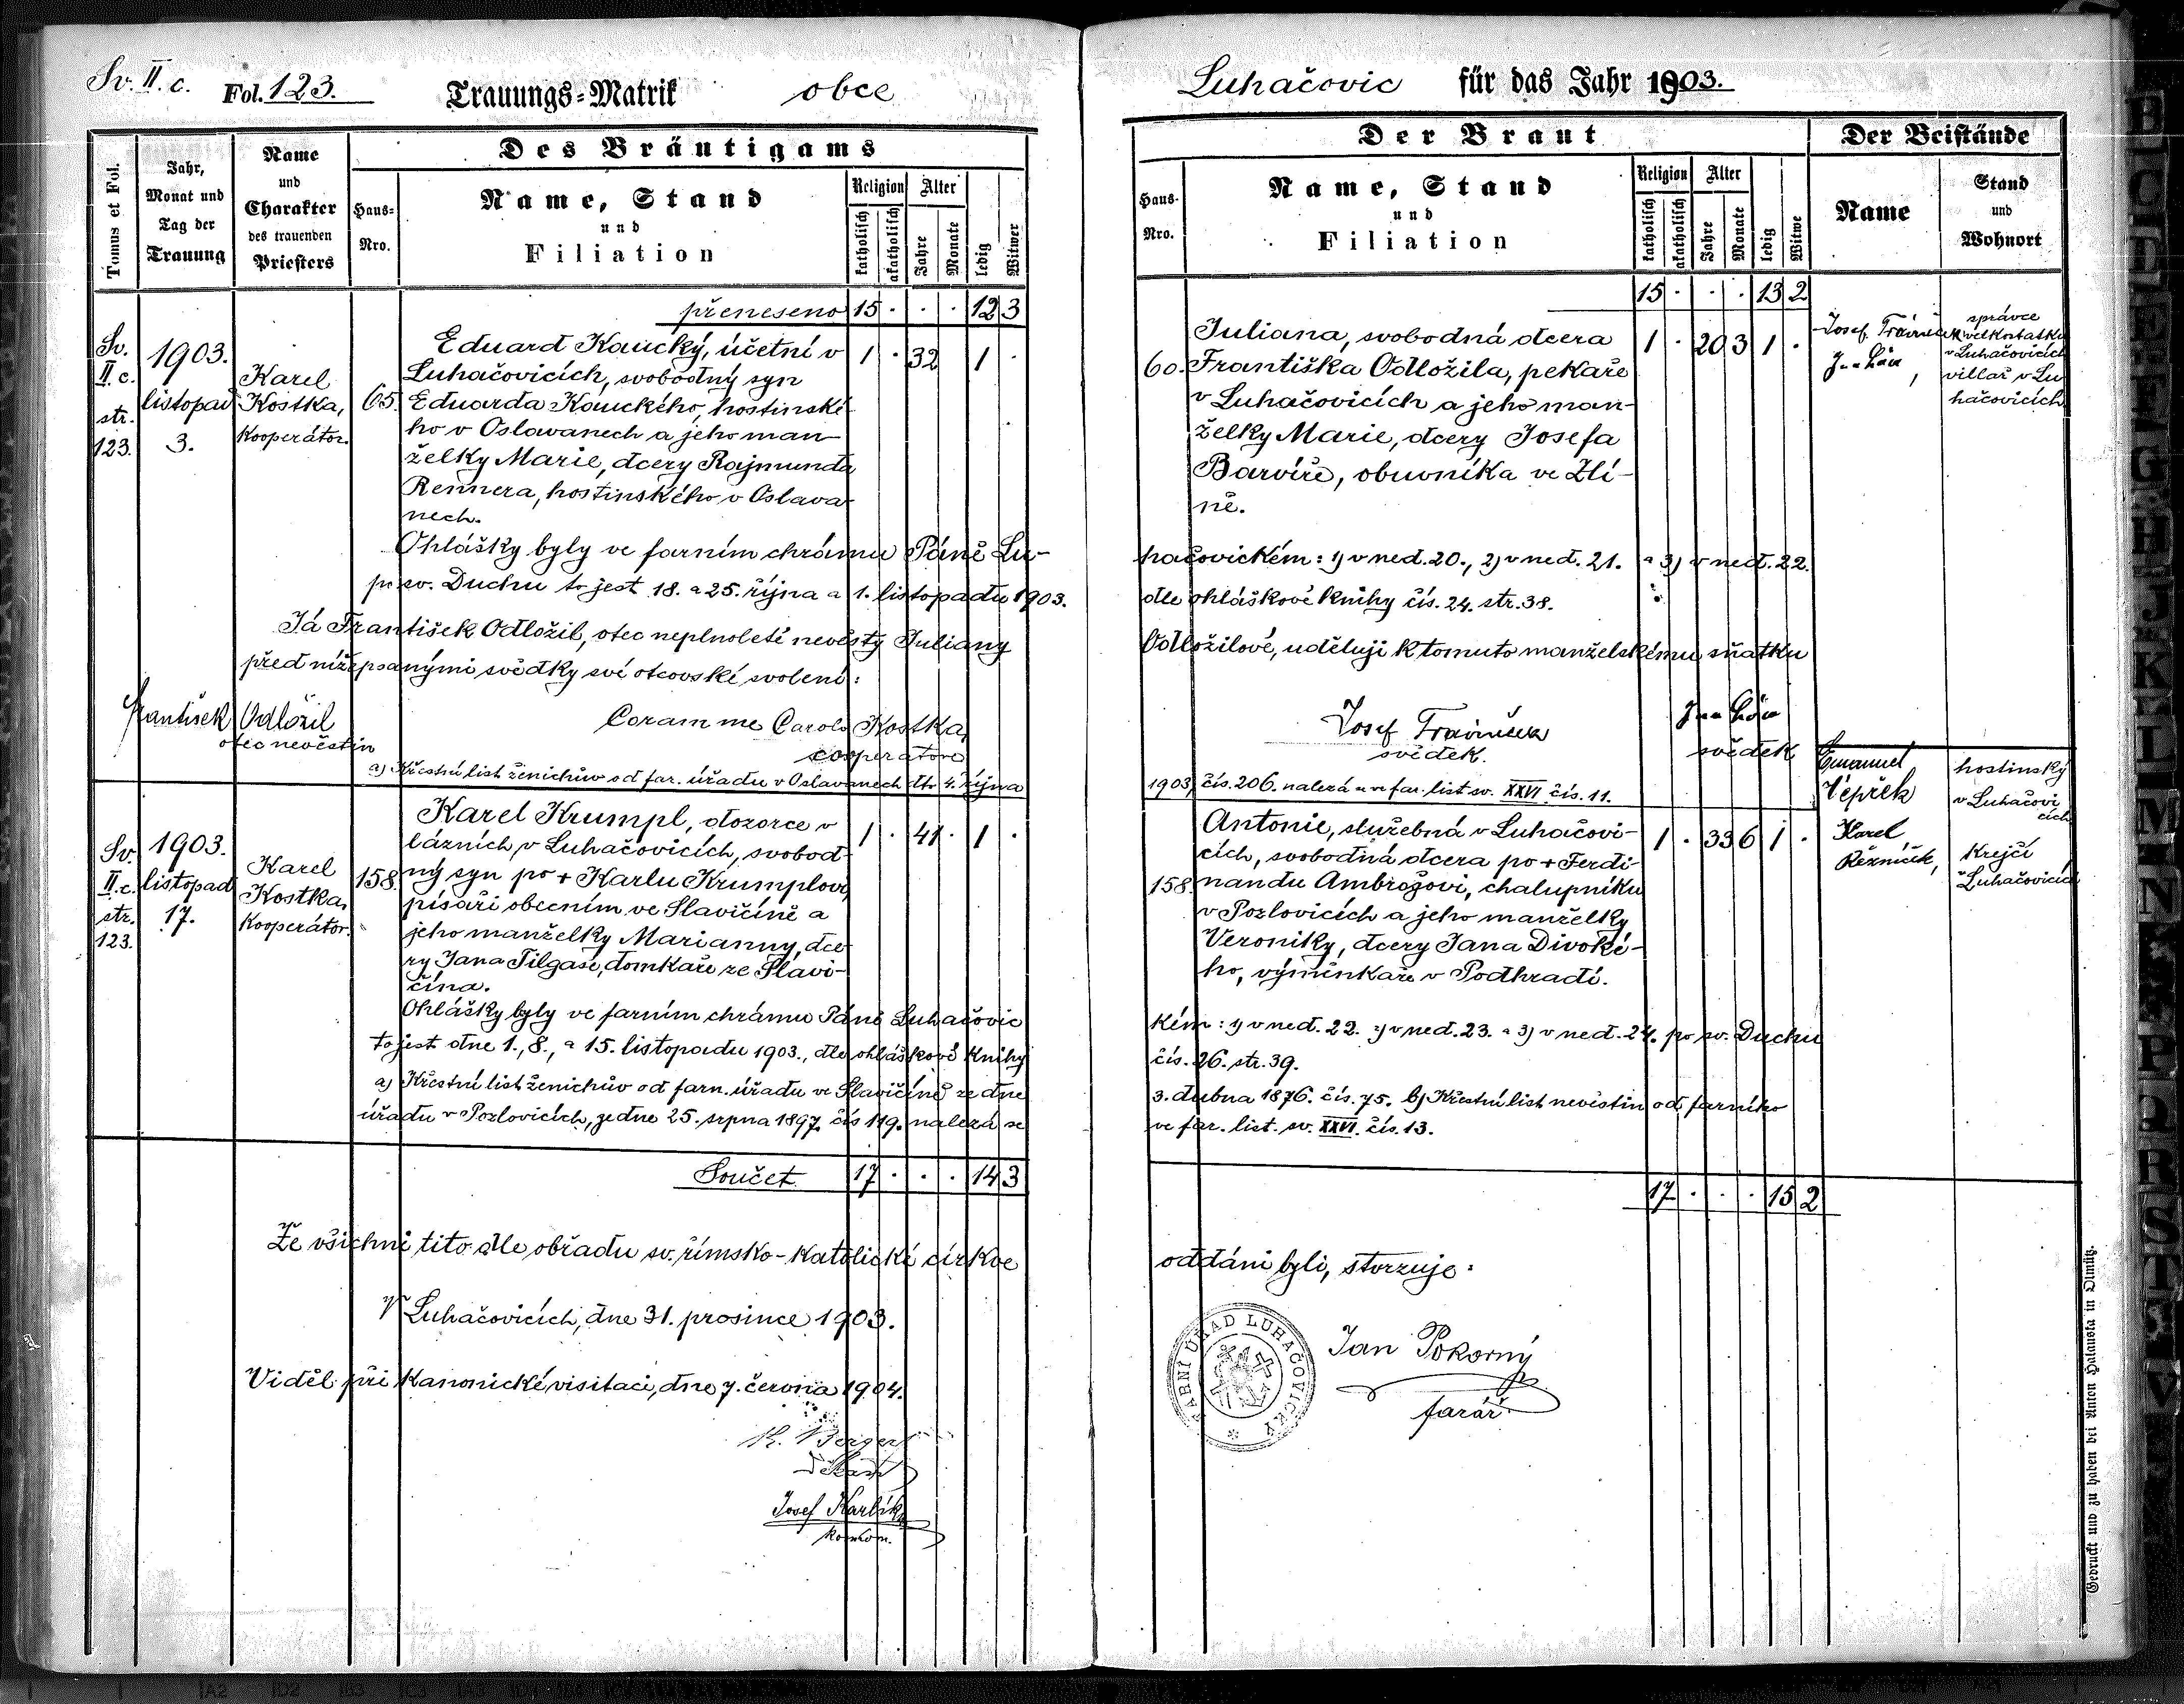 Sv. II. c. Fol. 123. Trauungs-Matrik obce
Tomus et Fol.
Jahr, Monat und Tag der Trauung
Name und Charakter des trauenden Priesters
Des Bräutigams
Haus-Nro.
Name, Stand
und
Filiation
Religion
katholisch
akatholisch
Alter
Jahre
Monate
ledig
Witwer
přeneseno 15 · · · 12 3
Sv. II. c. str. 123.
1903. listopad 3.
Karel Kostka, Kooperátor.
65.
Eduard Kaucký, účetní v
Luhačovicích, svobodný syn
Eduarda Kauckého, hostinské-
ho v Oslavanech a jeho man-
želky Marie, dcery Rajmunda
Rennera, hostinského v Oslava-
nech.
1 · 32 1 ·
Ohlášky byly ve farním chrámu Páně Lu-
po sv. Duchu to jest 18. a 25. října a 1. listopadu 1903.
Já František Odložil, otec neplnoleté nevěsty Juliany
před nížepsanými svědky své otcovské svolení:
František Odložil
otec nevěstin
Coram me Carolo Kostka,
cooperatore
a) Křestní list ženichův od far. úřadu v Oslavanech dto 4. října
Sv. II. c. str. 123.
1903. listopad 17.
Karel Kostka, Kooperátor.
158.
Karel Krumpl, dozorce v
lázních v Luhačovicích, svobod-
ný syn po + Karlu Krumplovi,
písaři obecním ve Slavičíně a
jeho manželky Marianny, dce-
ry Jana Tilgase, domkaře ze Slavi-
čína.
1 · 41 · 1 ·
Ohlášky byly ve farním chrámu Páně Luhačovic
to jest dne 1., 8., a 15. listopadu 1903., dle ohláškové knihy
a) Křestní list ženichův od farn. úřadu ve Slavičíně ze dne
úřadu v Pozlovicích, ze dne 25. srpna 1897. čís 119. nalezá se
Součet 17 · · · 14 3
Že všichni tito dle obřadu sv. římsko-katolické církve
V Luhačovicích, dne 31. prosince 1903.
Viděl při kanonické visitaci, dne 7. června 1904.
děkan
Josef Karlík
Luhačovic für das Jahr 1903.
Der Braut
Haus-Nro.
Name, Stand
und
Filiation
Religion
katholisch
akatholisch
Alter
Jahre
Monate
ledig
Witwe
Der Beistände
Name
Stand
und
Wohnort
15 · · · 13 2
60.
Juliana, svobodná dcera
Františka Odložila, pekaře
v Luhačovicích a jeho man-
želky Marie, dcery Josefa
Barvíře, obuvníka ve Zlí-
ně.
1 · 20 3 1 ·
Josef
správce
velkostatku
v Luhačovicích
villař v Lu
hačovicích
hačovickém: 1) v ned. 20., 2) v ned. 21. a 3) v ned. 22.
dle ohláškové knihy čís. 24. str. 38.
Odložilové, uděluji k tomuto manželskému sňatku
Josef
svědek.
svědek
1903, čís. 206. nalezá se ve far. list sv. XXVI čís. 11.
158.
Antonie, služebná v Luhačovi-
cích, svobodná dcera po + Ferdi-
nandu Ambrožovi, chalupníku
v Pozlovicích a jeho manželky
Veroniky, dcery Jana Divoké-
ho, výminkaře v Podhradí.
1 · 33 6 1 ·
Emanuel
Vepřek
hostinský
v Luhačovi
cích
Karel
Řezníček,
krejčí
Luhačovicích
kém: 1) v ned. 22. 2) v ned. 23. a 3) v ned. 24. po sv. Duchu
čís. 26. str. 39.
3. dubna 1876. čís. 75. b) Křestní list nevěstin od farního
ve far. list. sv. XXVI. čís. 13.
17 · · · 15 2
oddáni byli, stvrzuje:
FARNÍ ÚŘAD LUHAČOVICKÝ
Jan Pokorný
farář.
Gedruckt und zu haben bei Anton Halauska in Olmütz.